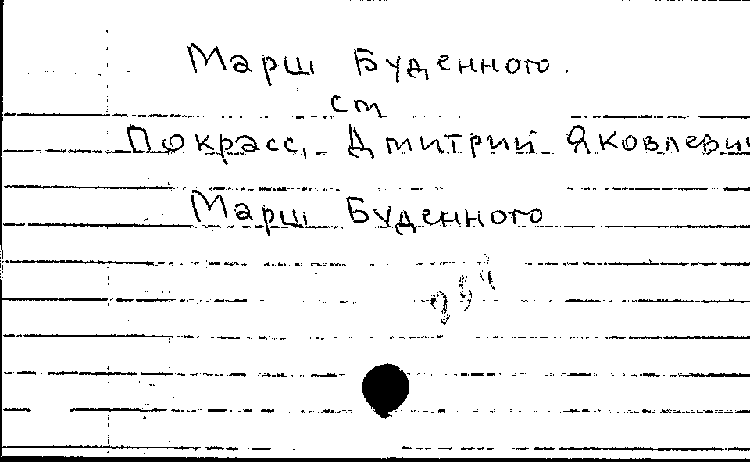 Марш Буденного.
см
Покрасс, Дмитрий Яковлеви
Марш Буденного